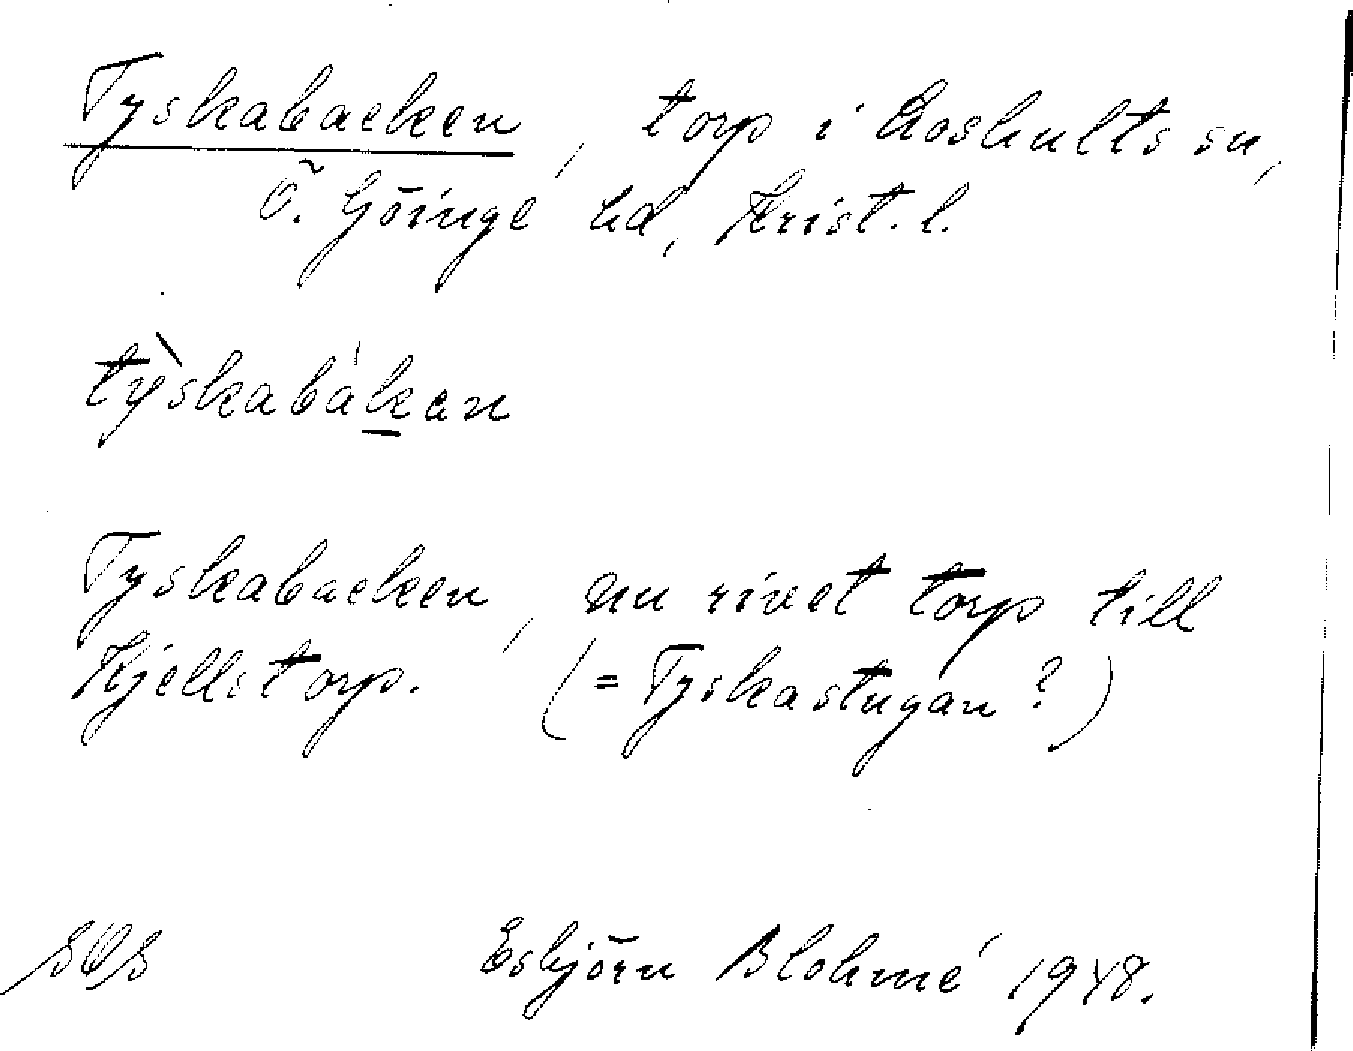 Tyskabacken, torp i Loshults sn,
Ö. Göinge hd, Krist. l.
tỳskabákan
Tyskabacken, nu rivet torp till
Kjellstorp. (= Tyskastugan?)
Esbjörn Blohmé 1948.